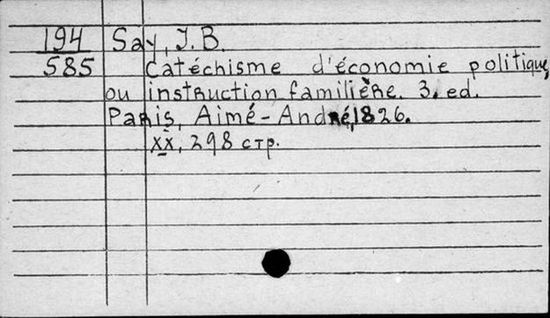 194 Say, J. B.
585 Catéchisme d'économie politique,
ou instruction familière. 3. ed.
Paris, Aimé-André, 1826.
XX, 298 стр.